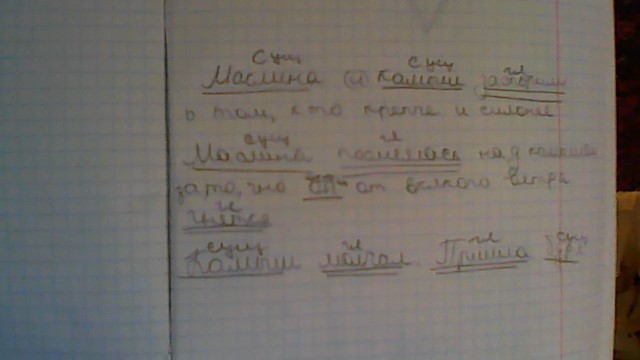 сущ сущ гл
Маслина и камыш заспорили
о том, кто крепче и сильнее
сущ гл
Маслина посмеялась над камышом
за то, что он от всякого ветра
гл
гнётся
сущ гл гл сущ
Камыш молчал. Пришла